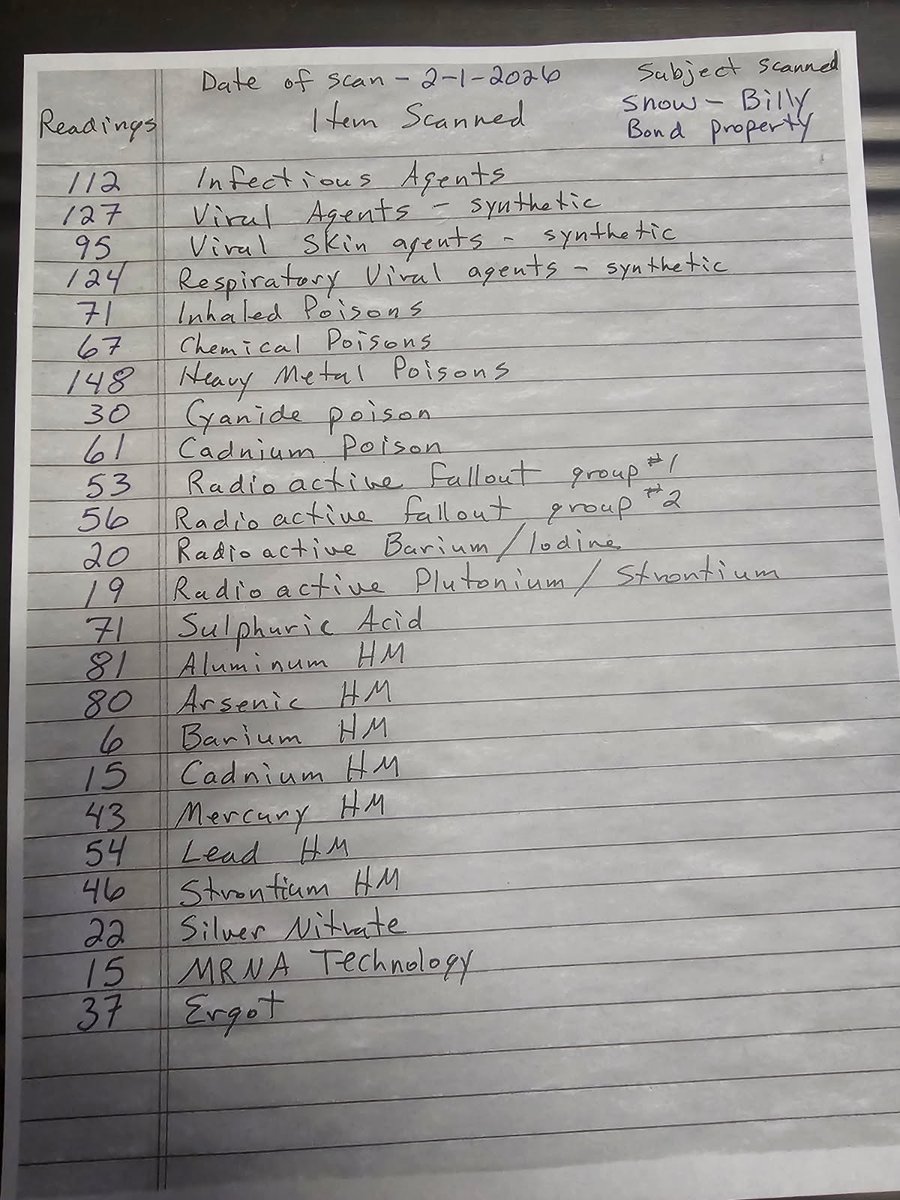 Date of scan - 2-1-2026
Subject scanned
Snow - Billy
Bond property
Readings
Item Scanned
112 Infectious Agents
127 Viral Agents - synthetic
95 Viral Skin agents - synthetic
124 Respiratory Viral agents - synthetic
71 Inhaled Poisons
67 Chemical Poisons
148 Heavy Metal Poisons
30 Cyanide poison
61 Cadnium Poison
53 Radio active fallout group #1
56 Radio active fallout group #2
20 Radioactive Barium/Iodine
19 Radioactive Plutonium/Strontium
71 Sulphuric Acid
81 Aluminum HM
80 Arsenic HM
6 Barium HM
15 Cadnium HM
43 Mercury HM
54 Lead HM
46 Strontium HM
22 Silver Nitrate
15 MRNA Technology
37 Ergot